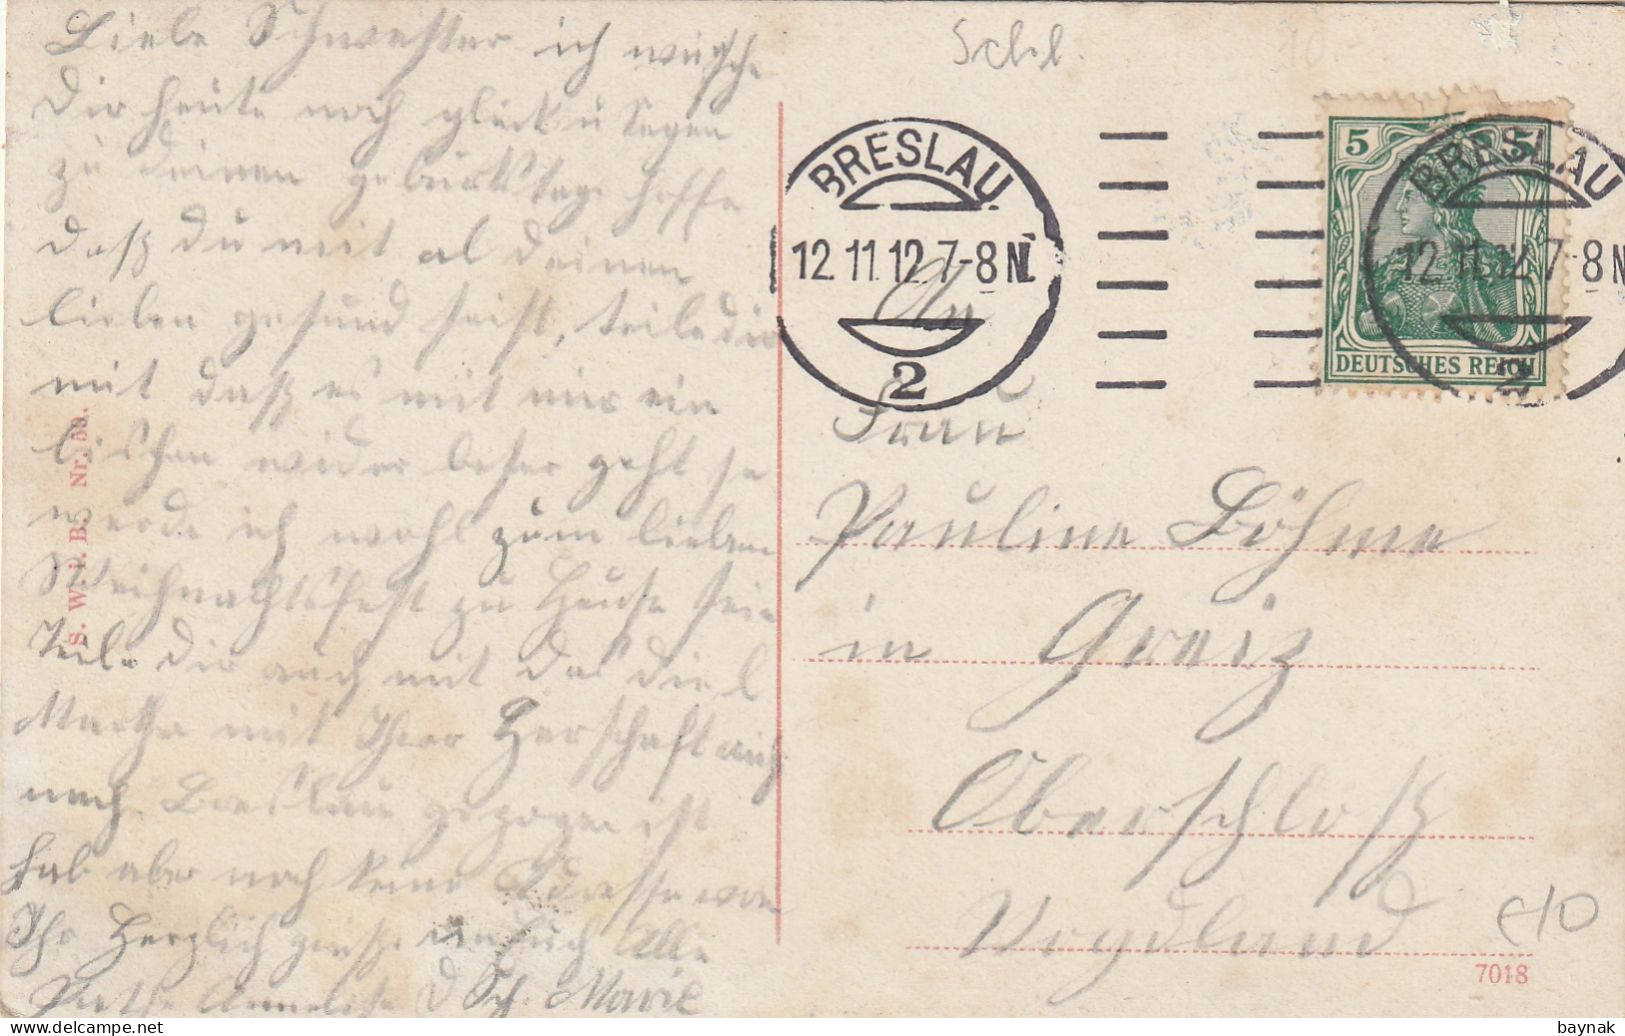 Liebe Schwester ich wüsche
Dir heute noch glück u Segen
zu deinen geburtstage hoffe
daß du mit al deinen
lieben gesund seist, teile dir
mit daß es mit mir ein
bischen wider beßer geht so
werde ich wohl zum lieben
Weihnachtsfest zu Hause sein
Teile Dir auch mit das die l
Martha mit Ihrer Herschaft auch
nach Breslau gezogen ist
hab aber noch keine Adresse von
Ihr Herzlich grüße an Euch Alle
D Sch. Marie
S. W. i. B. Nr.
Schl.
BRESLAU
12.11.12.7-8N
2
5 5
DEUTSCHES REICH
BRESLAU
12.11.12.7-8N
2
An
Frau
Pauline Böhme
in Greiz
Oberschloß
Vogdland
7018
baynak